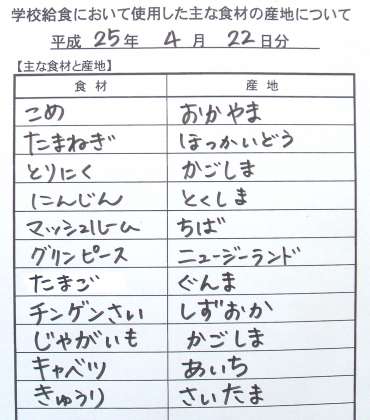 学校給食において使用した主な食材の産地について
平成 25年 4月 22日分
【主な食材と産地】
食材 産地
こめ おかやま
たまねぎ ほっかいどう
とりにく かごしま
にんじん とくしま
マッシュルーム ちば
グリンピース ニュージーランド
たまご ぐんま
チンゲンさい しずおか
じゃがいも かごしま
キャベツ あいち
きゅうり さいたま